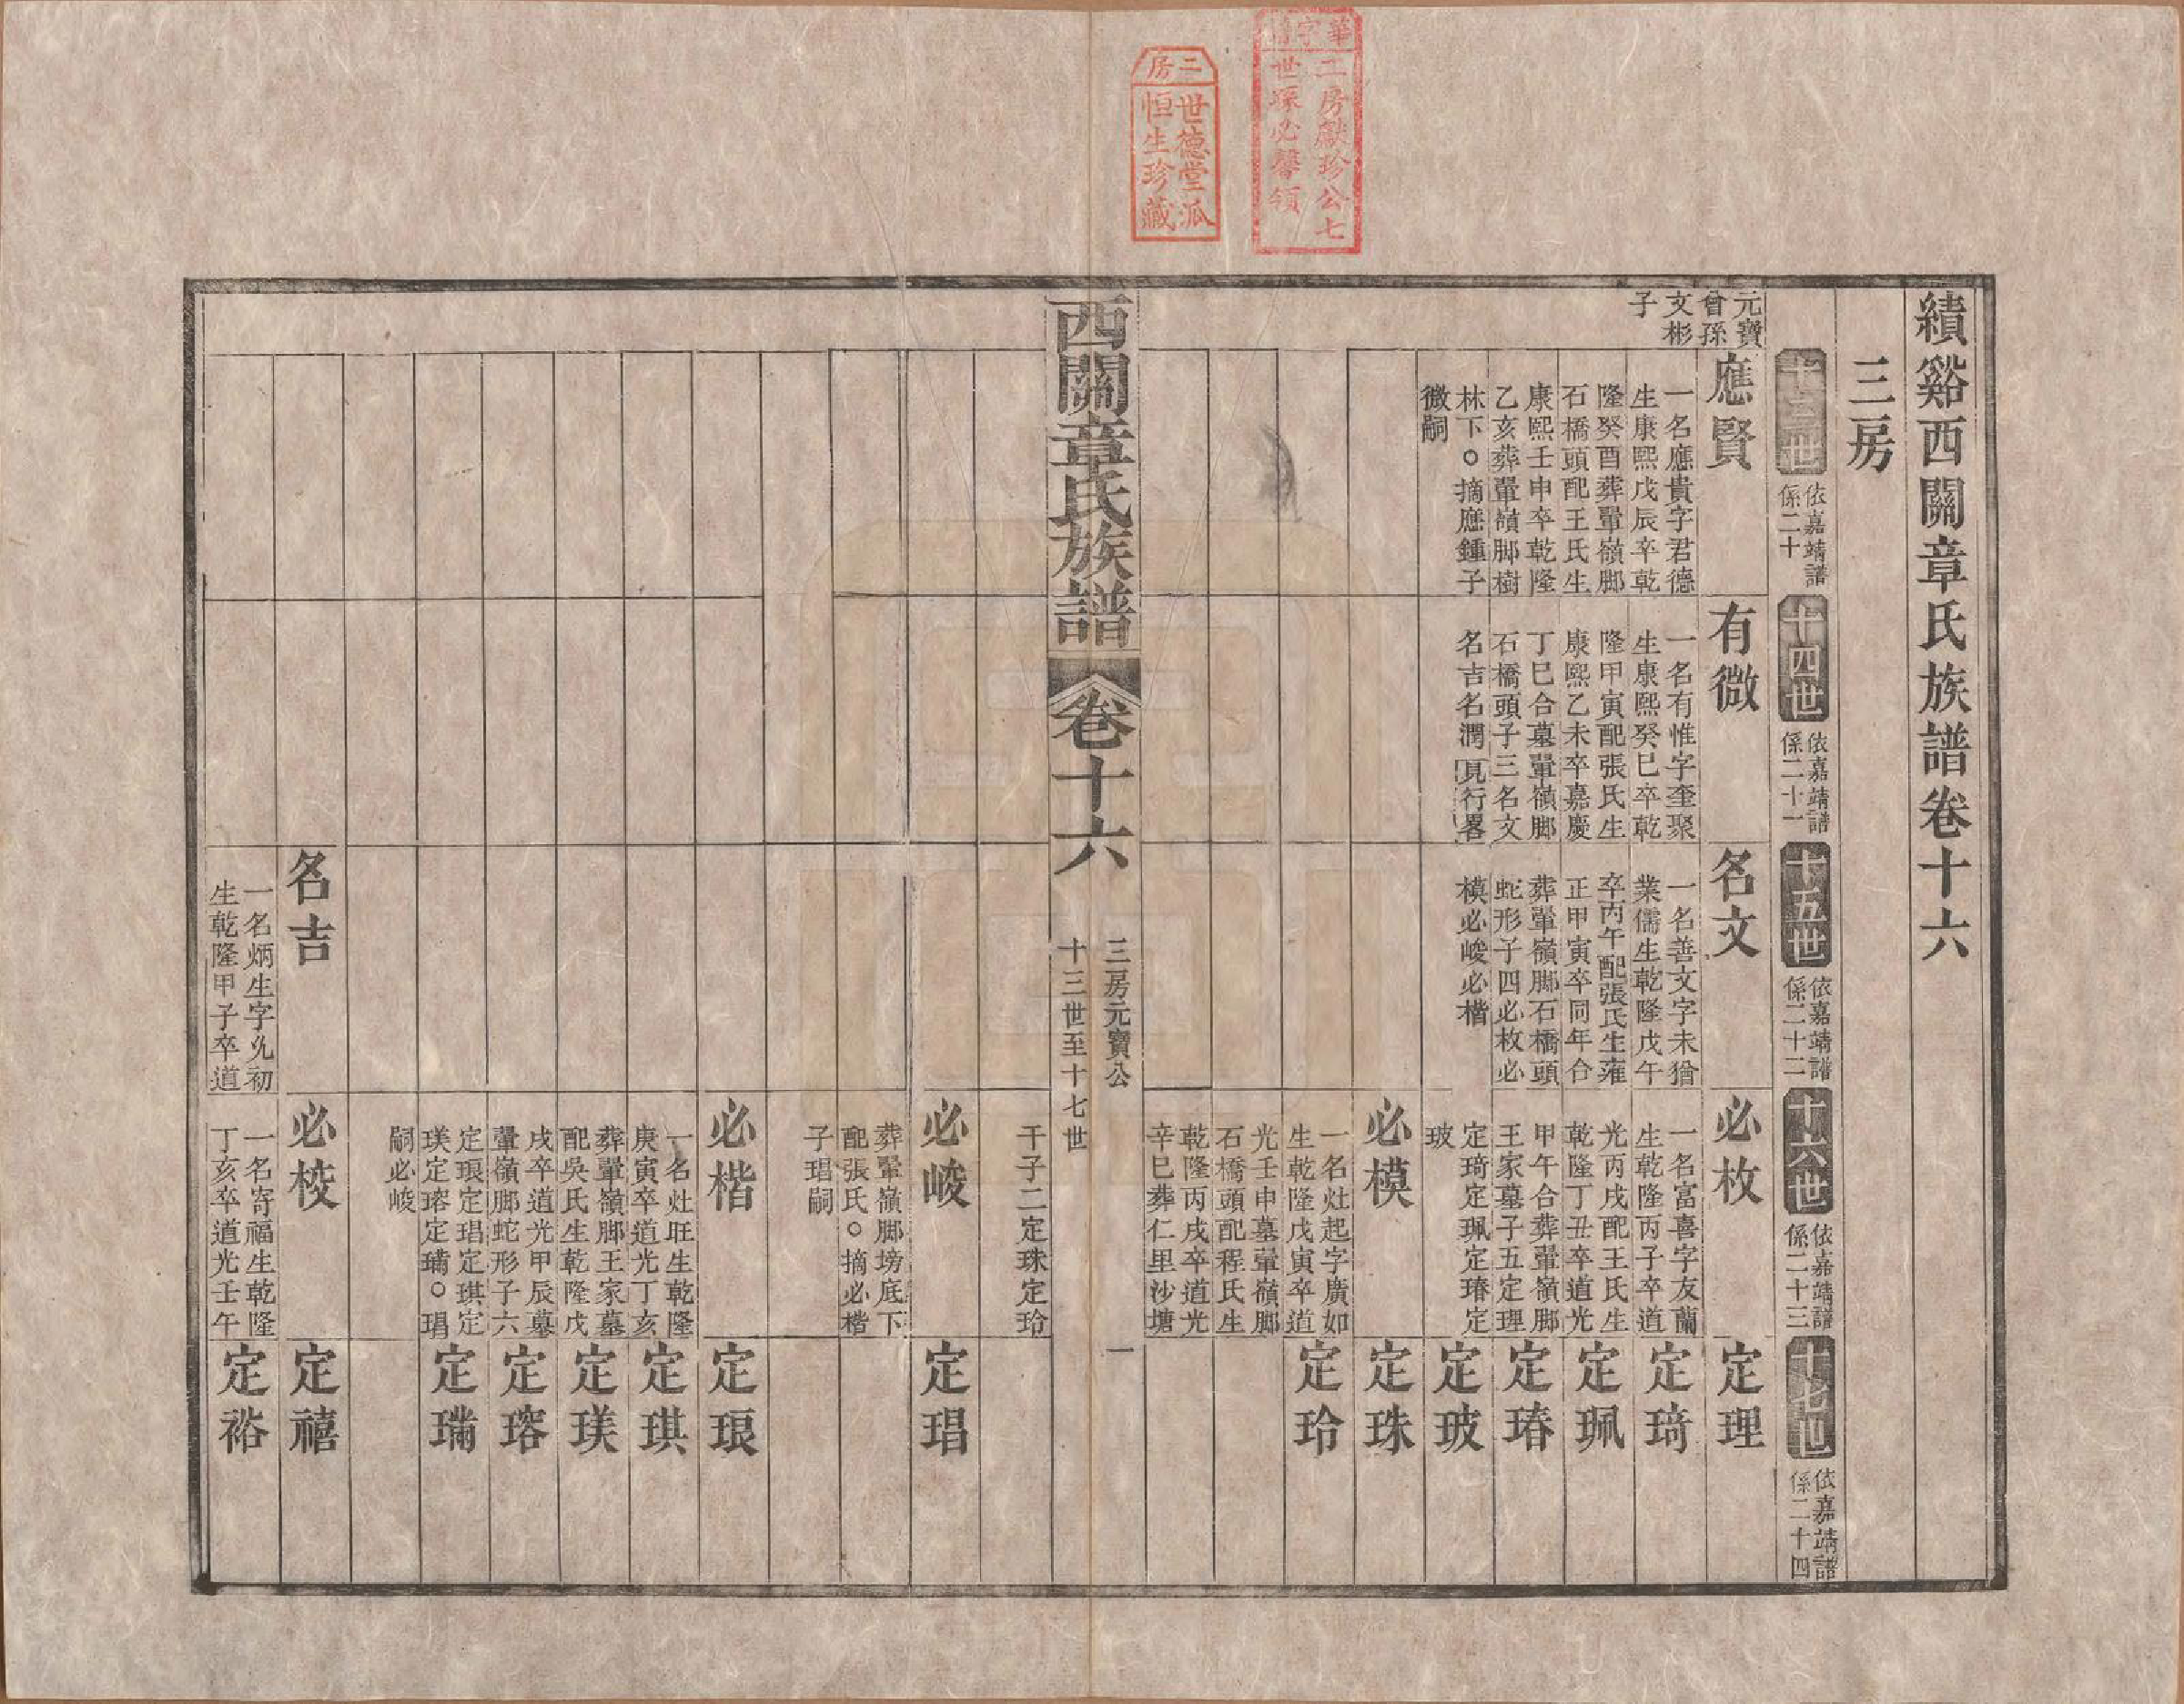 績谿西關章氏族譜卷十六
三房
十三世
依嘉靖譜
係二十
十四世
依嘉靖譜
係二十一
十五世
依嘉靖譜
係二十二
十六世
依嘉靖譜
係二十三
十七世
依嘉靖譜
係二十四
元寶
曾孫
文彬
子
應賢
一名應貴字君德
生康熙戊辰卒乾
隆癸酉葬翬嶺脚
石橋頭配王氏生
康熙壬申卒乾隆
乙亥葬翬嶺脚樹
林下○摘應鍾子
微嗣
有微
一名有惟字奎聚
生康熙癸巳卒乾
隆甲寅配張氏生
康熙乙未卒嘉慶
丁巳合墓翬嶺脚
石橋頭子三名文
名吉名潤見行畧
名文
一名善文字未猶
業儒生乾隆戊午
卒丙午配張氏生雍
正甲寅卒同年合
葬翬嶺脚石橋頭
蛇形子四必枚必
模必峻必楷
必枚
一名富喜字友蘭
生乾隆丙子卒道
光丙戌配王氏生
乾隆丁丑卒道光
甲午合葬翬嶺脚
王家墓子五定理
定琦定珮定瑃定
玻
定理
定琦
定珮
定瑃
定玻
必模
一名灶起字廣如
生乾隆戊寅卒道
光壬申墓翬嶺脚
石橋頭配程氏生
乾隆丙戌卒道光
辛巳葬仁里沙塘
定珠
定玲
西關章氏族譜
卷十六
三房元寶公
十三世至十七世
一
干子二定珠定玲
必峻
葬翬嶺脚塝底下
配張氏○摘必楷
子琩嗣
定琩
必楷
一名灶旺生乾隆
庚寅卒道光丁亥
葬翬嶺脚王家墓
配吳氏生乾隆戊
戌卒道光甲辰墓
翬嶺脚蛇形子六
定琅定琩定琪定
瑛定瑢定㻾○琩
嗣必峻
定琅
定琪
定瑛
定瑢
定㻾
名吉
一名炳生字允初
生乾隆甲子卒道
必校
一名寄福生乾隆
丁亥卒道光壬午
定禧
定裕
華字號
二房獻珍公七
世孫必馨領
二房
世德堂派
恒生珍藏